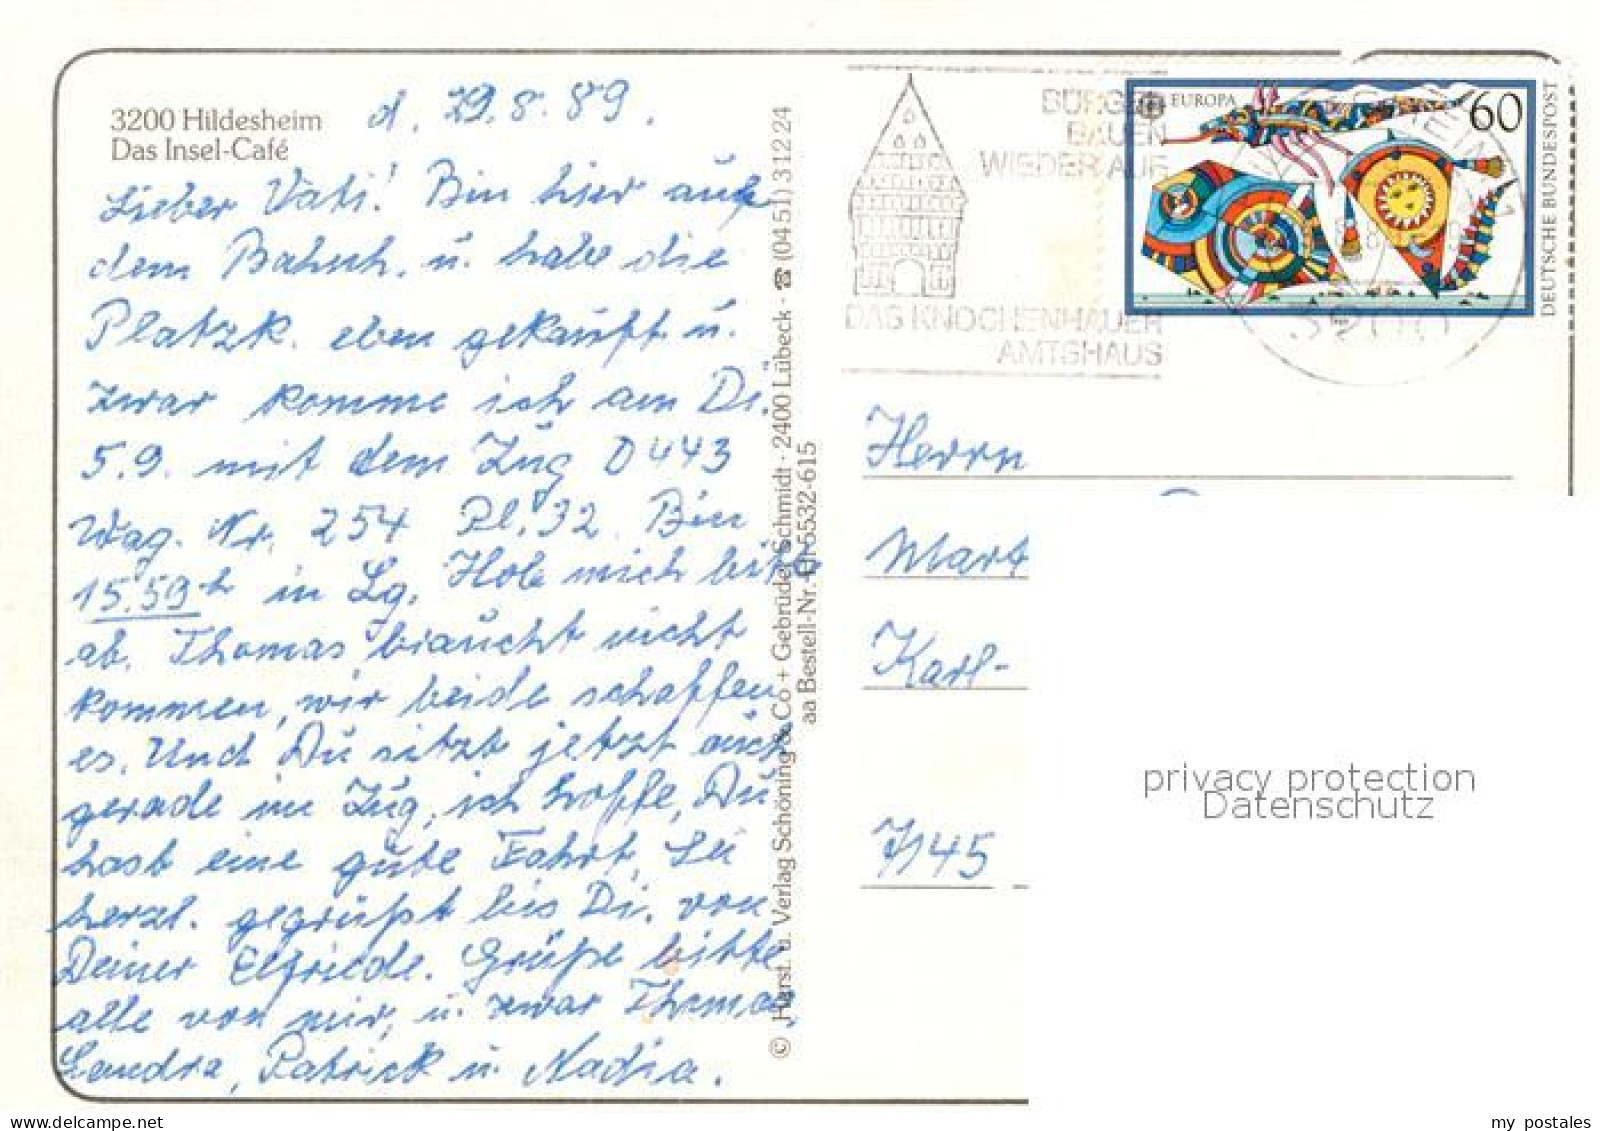 3200 Hildesheim
Das Insel-Café
d. 29.8.89.
Lieber Vati! Bin hier auf
dem Bahnh. u. habe die
Platzk. eben gekauft u.
zwar komme ich am Di.
5.9. mit dem Zug D 443
Wag. Nr. 254 Pl. 32. Bin
15.59 h in Lg. Hole mich bitte
ab. Thomas braucht nicht
kommen, wir beide schaffen
es. Und Du sitzt jetzt auch
gerade im Zug, ich hoffe, Du
hast eine gute Fahrt. Sei
herzl. gegrüßt bis Di. von
Deiner Elfriede. Grüße bitte
alle von mir, u. zwar Thomas,
Sandra, Patrick u. Nadia.
© Herst. u. Verlag Schöning & Co + Gebrüder Schmidt · 2400 Lübeck · ☎ (0451) 31224
aa Bestell-Nr. 5532-615
BÜRGER
BAUEN
WIEDER AUF
DAS KNOCHENHAUER
AMTSHAUS
EUROPA
60
DEUTSCHE BUNDESPOST
3200
Herrn
Mart
Karl-
7145
privacy protection
Datenschutz
www.delcampe.net
my_postales